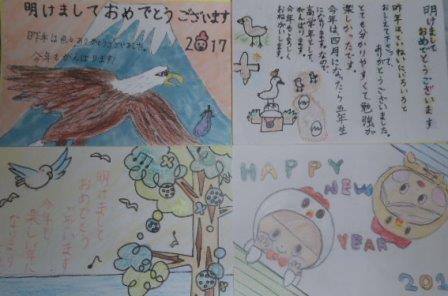 明けましておめでとうございます
昨年は色々ありがとうございました。
今年もがんばります!
2017
明けまして
おめでとうございます
昨年はていねいにいろいろと
おしえて下さって、
ありがとうございました。
とても分かりやすくて勉強が
楽しかったです。
今年は四月になったら五年生
になります。なので
高学年として
がんばります。
今年もよろしく
おねがいします。
明けまして
おめでとう
ございます
今年も
楽しい年に
HAPPY
NEW
YEAR
201